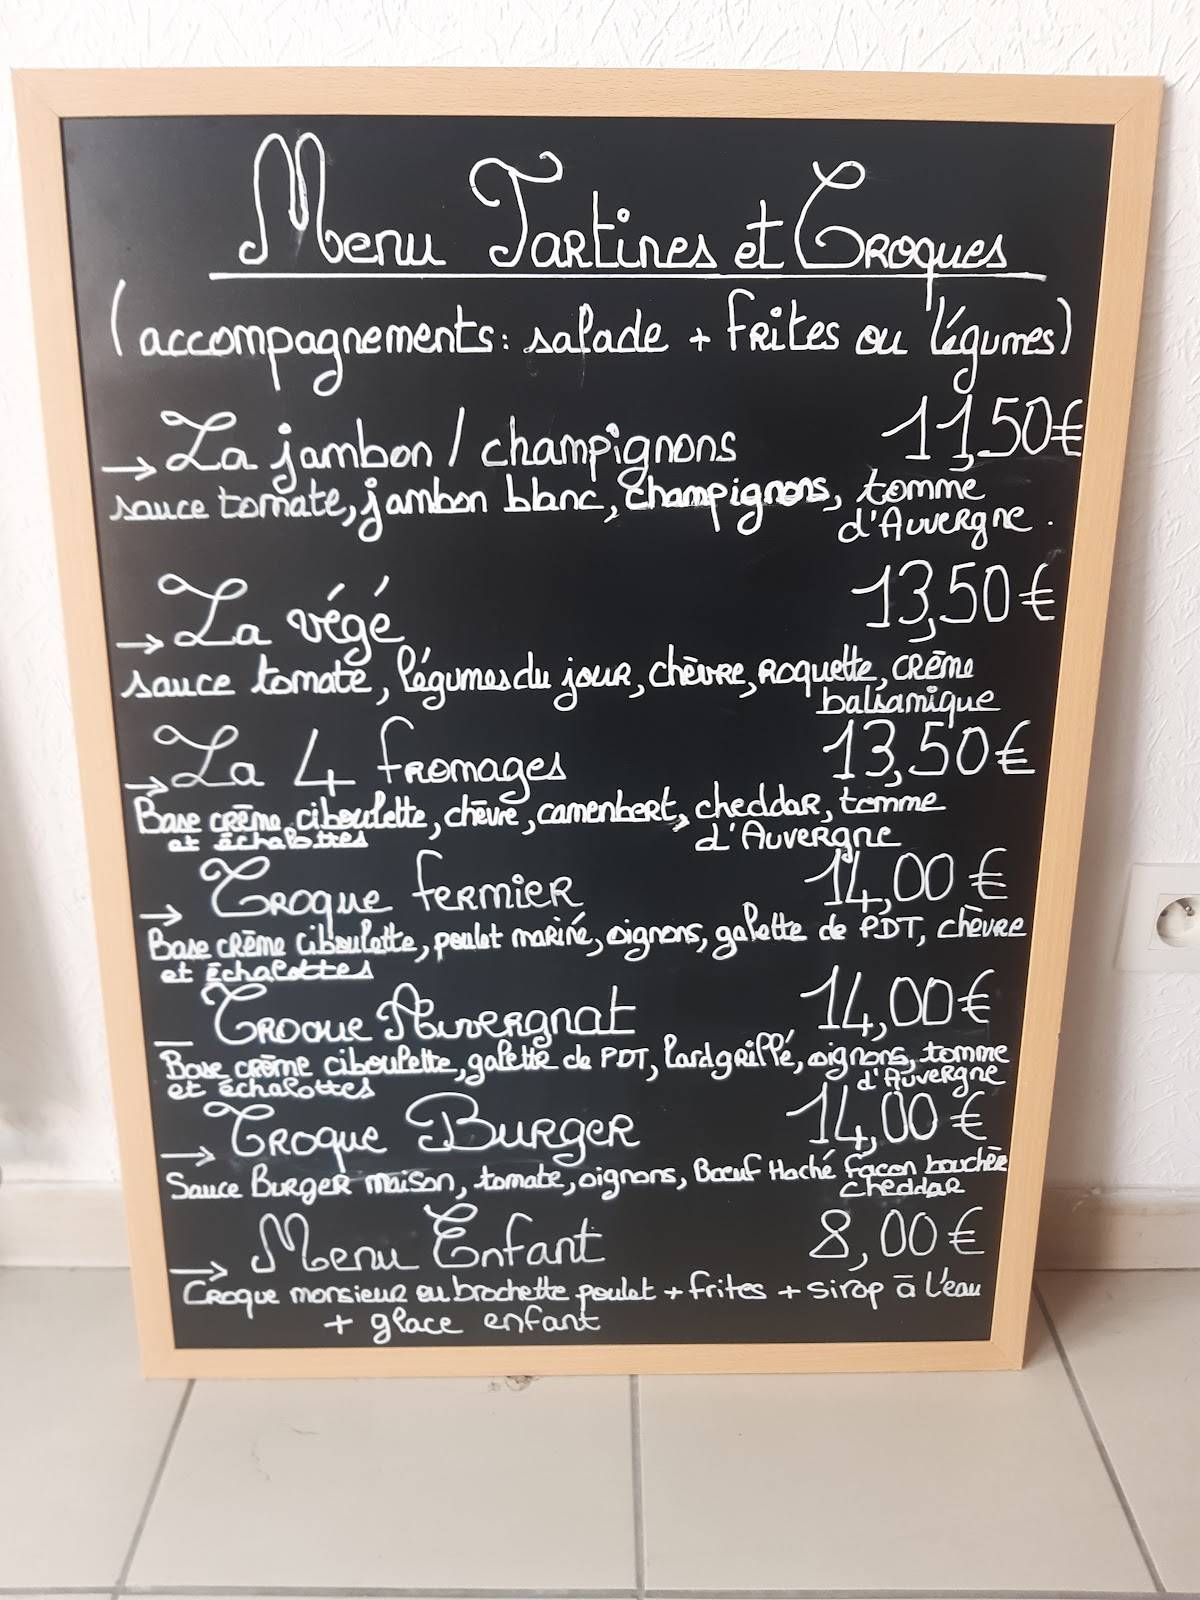 Menu Tartines et Croques
(accompagnements: salade + frites ou légumes)
→ La jambon / champignons 11,50€
sauce tomate, jambon blanc, champignons, tomme
d'Auvergne.
→ La végé 13,50€
sauce tomate, légumes du jour, chèvre, roquette, crème
balsamique
→ La 4 fromages 13,50€
Base crème ciboulette, chèvre, camenbert, cheddar, tomme
et échalottes d'Auvergne
→ Croque fermier 14,00€
Base crème ciboulette, poulet mariné, oignons, galette de PDT, chèvre
et échalottes
_ Croque Auvergnat 14,00€
Base crème ciboulette, galette de PDT, lard grillé, oignons, tomme
et échalottes d'Auvergne
→ Croque Burger 14,00€
Sauce Burger maison, tomate, oignons, Bœuf Haché façon bouchère
cheddar
→ Menu Enfant 8,00€
Croque monsieur ou brochette poulet + frites + sirop à l'eau
+ glace enfant